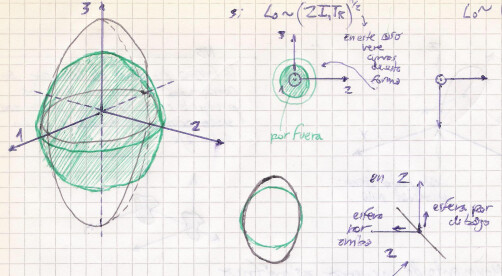 3
1
2
si L₀ ~ (2I₁T_R)^½
L₀ ~ (
en este caso
vere
curvas
de esta
forma
3
1
2
por fuera
en 2
esfera por
debajo
esfera
por
arriba
2